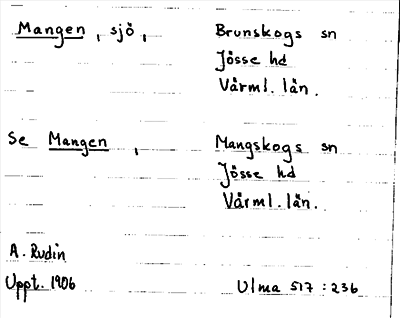 Mangen, sjö, Brunskogs sn
Jösse hd
Värml. län.
Se Mangen, Mangskogs sn
Jösse hd
Värml. län.
A. Rudin
Uppt. 1906 Ulma 517:236